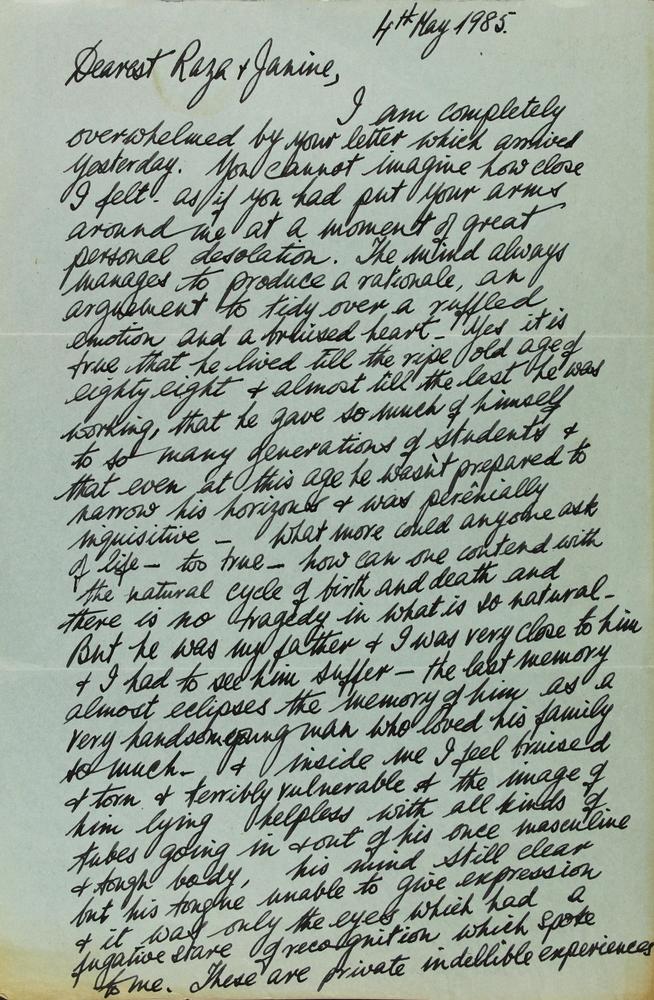 4th May 1985.
Dearest Raza & Janine,
I am completely
overwhelmed by your letter which arrived
yesterday. You cannot imagine how close
I felt - as if you had put your arms
around me at a moment of great
personal desolation. The mind always
manages to produce a rationale, an
arguement to tidy over a ruffled
emotion and a bruised heart - Yes it is
true that he lived till the ripe old age of
eighty eight & almost till the last he was
working, that he gave so much of himself
to so many generations of students &
that even at this age he wasn't prepared to
narrow his horizons & was perenially
inquisitive - what more could anyone ask
of life - too true - how can one contend with
the natural cycle of birth and death and
there is no tragedy in what is so natural -
But he was my father & I was very close to him
& I had to see him suffer - the last memory
almost eclipses the memory of him as a
very handsome young man who loved his family
so much - & inside me I feel bruised
& torn & terribly vulnerable & the image of
him lying helpless with all kinds of
tubes going in & out of his once masculine
& tough body, his mind still clear
but his tongue unable to give expression
& it was only the eyes which had a
fugative stare of recognition which spoke
to me. These are private indellible experiences